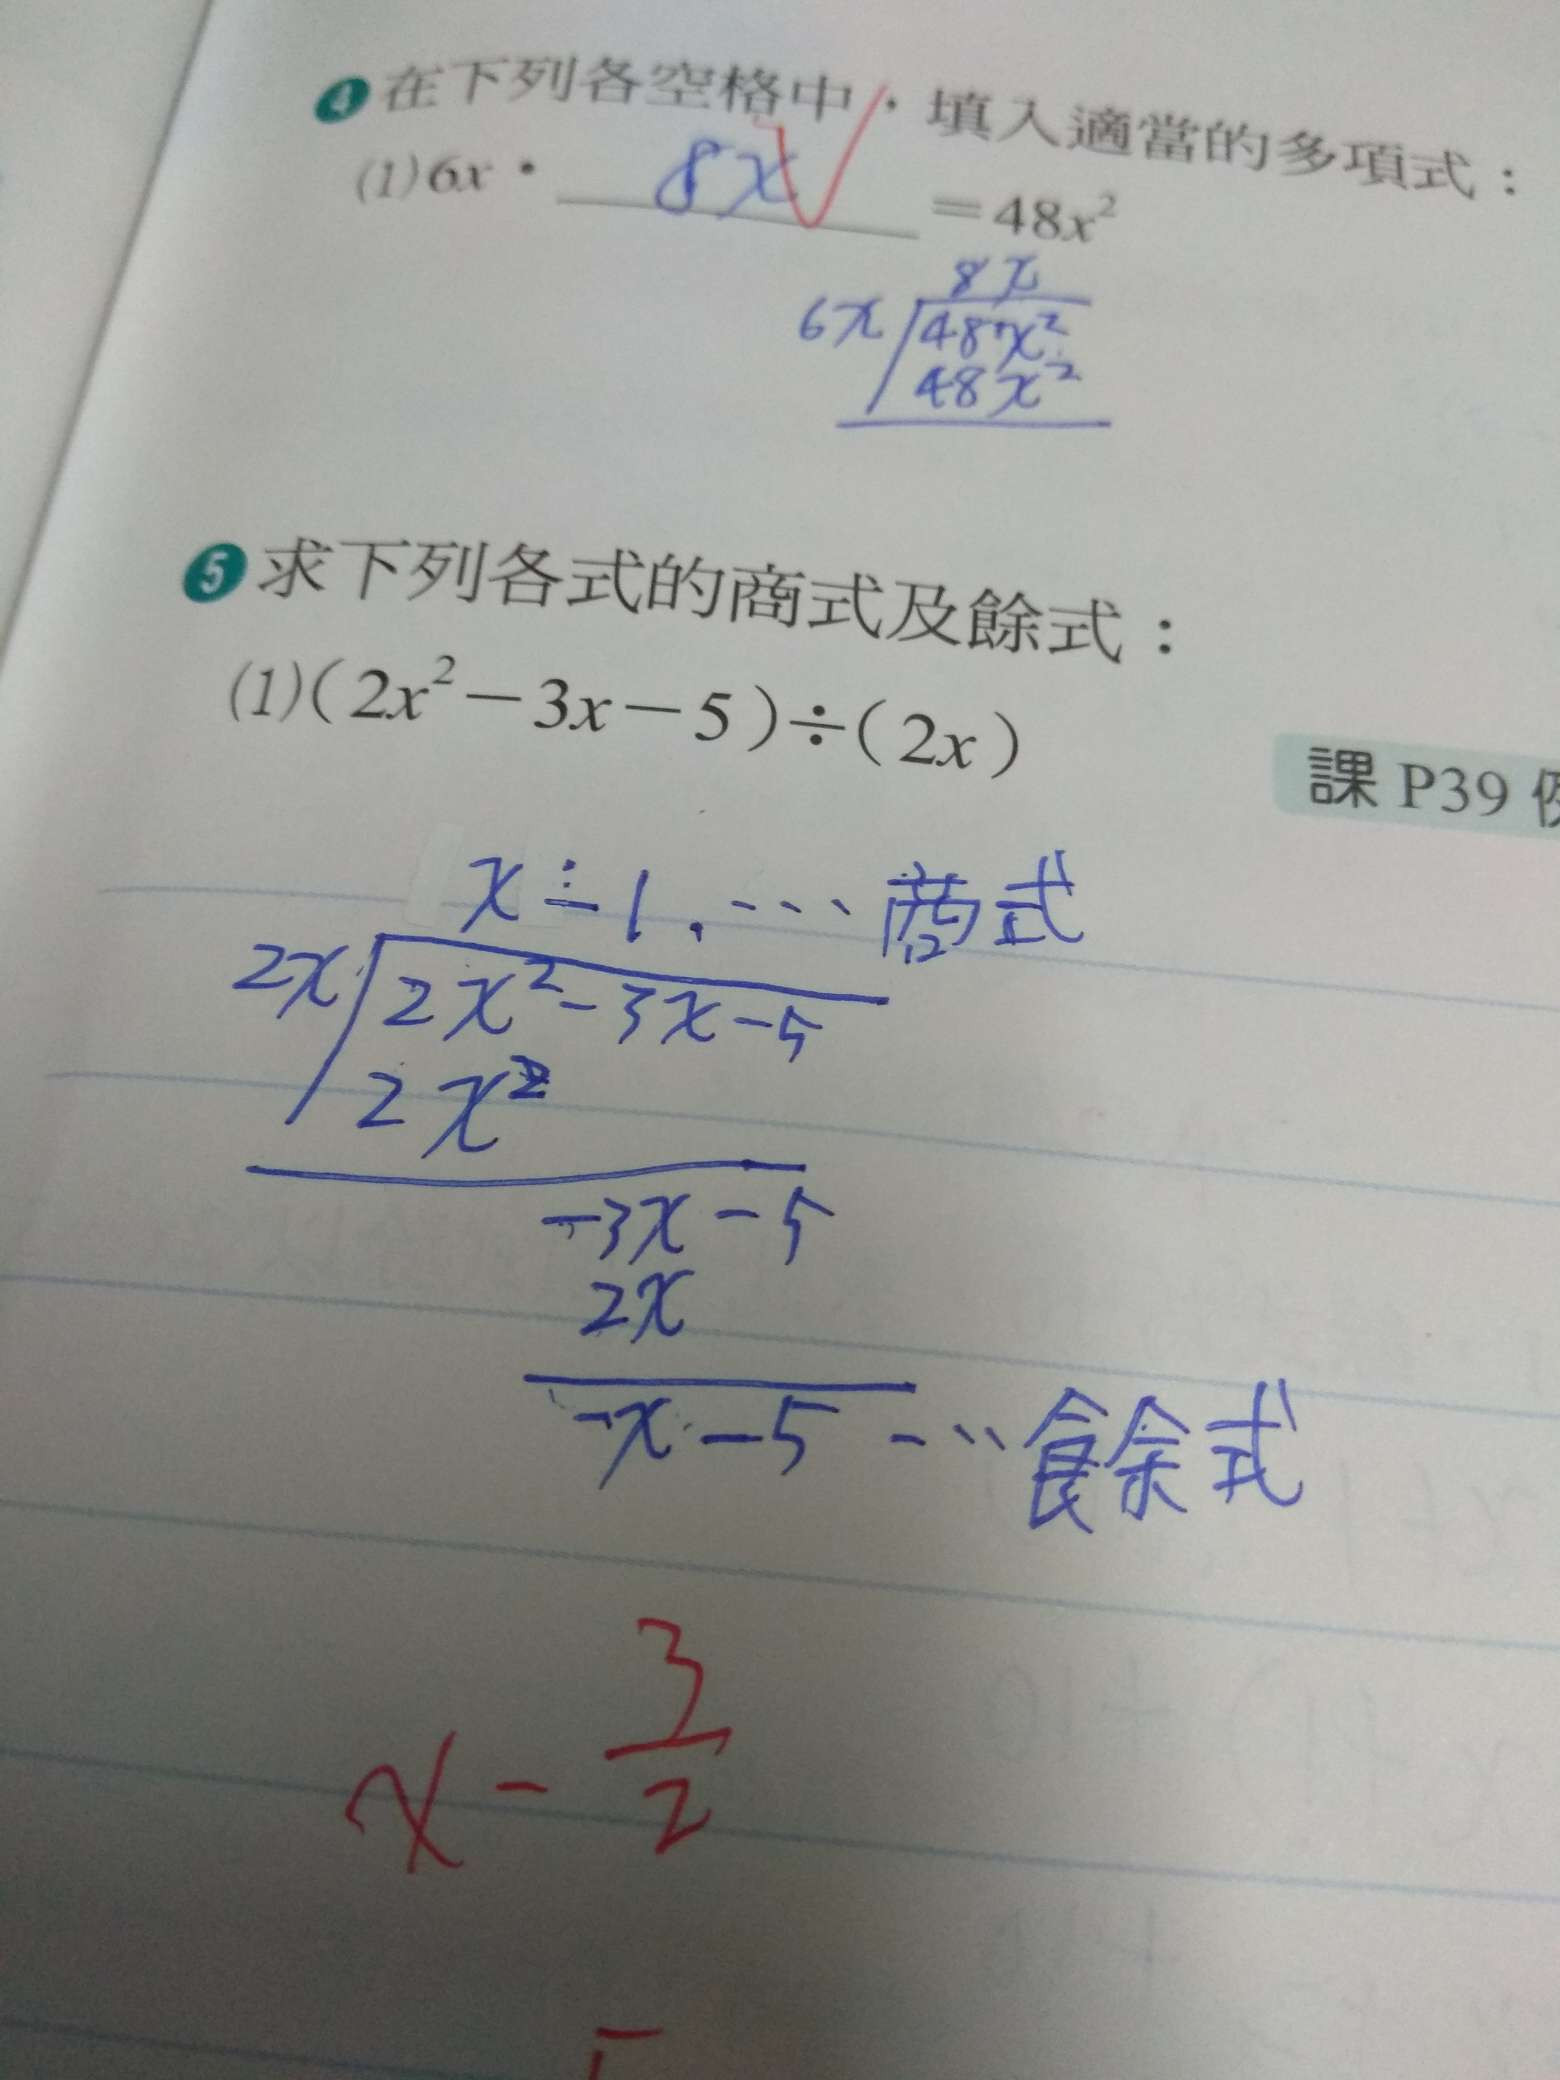 4 在下列各空格中，填入適當的多項式：
(1) 6x · 8x = 48x²
8x
6x 48x²
48x²
5 求下列各式的商式及餘式：
(1) (2x²－3x－5)÷(2x)
課 P39
x - 1 … 商式
2x 2x² - 3x - 5
2x²
-3x - 5
2x
-x - 5 … 餘式
x - 3/2